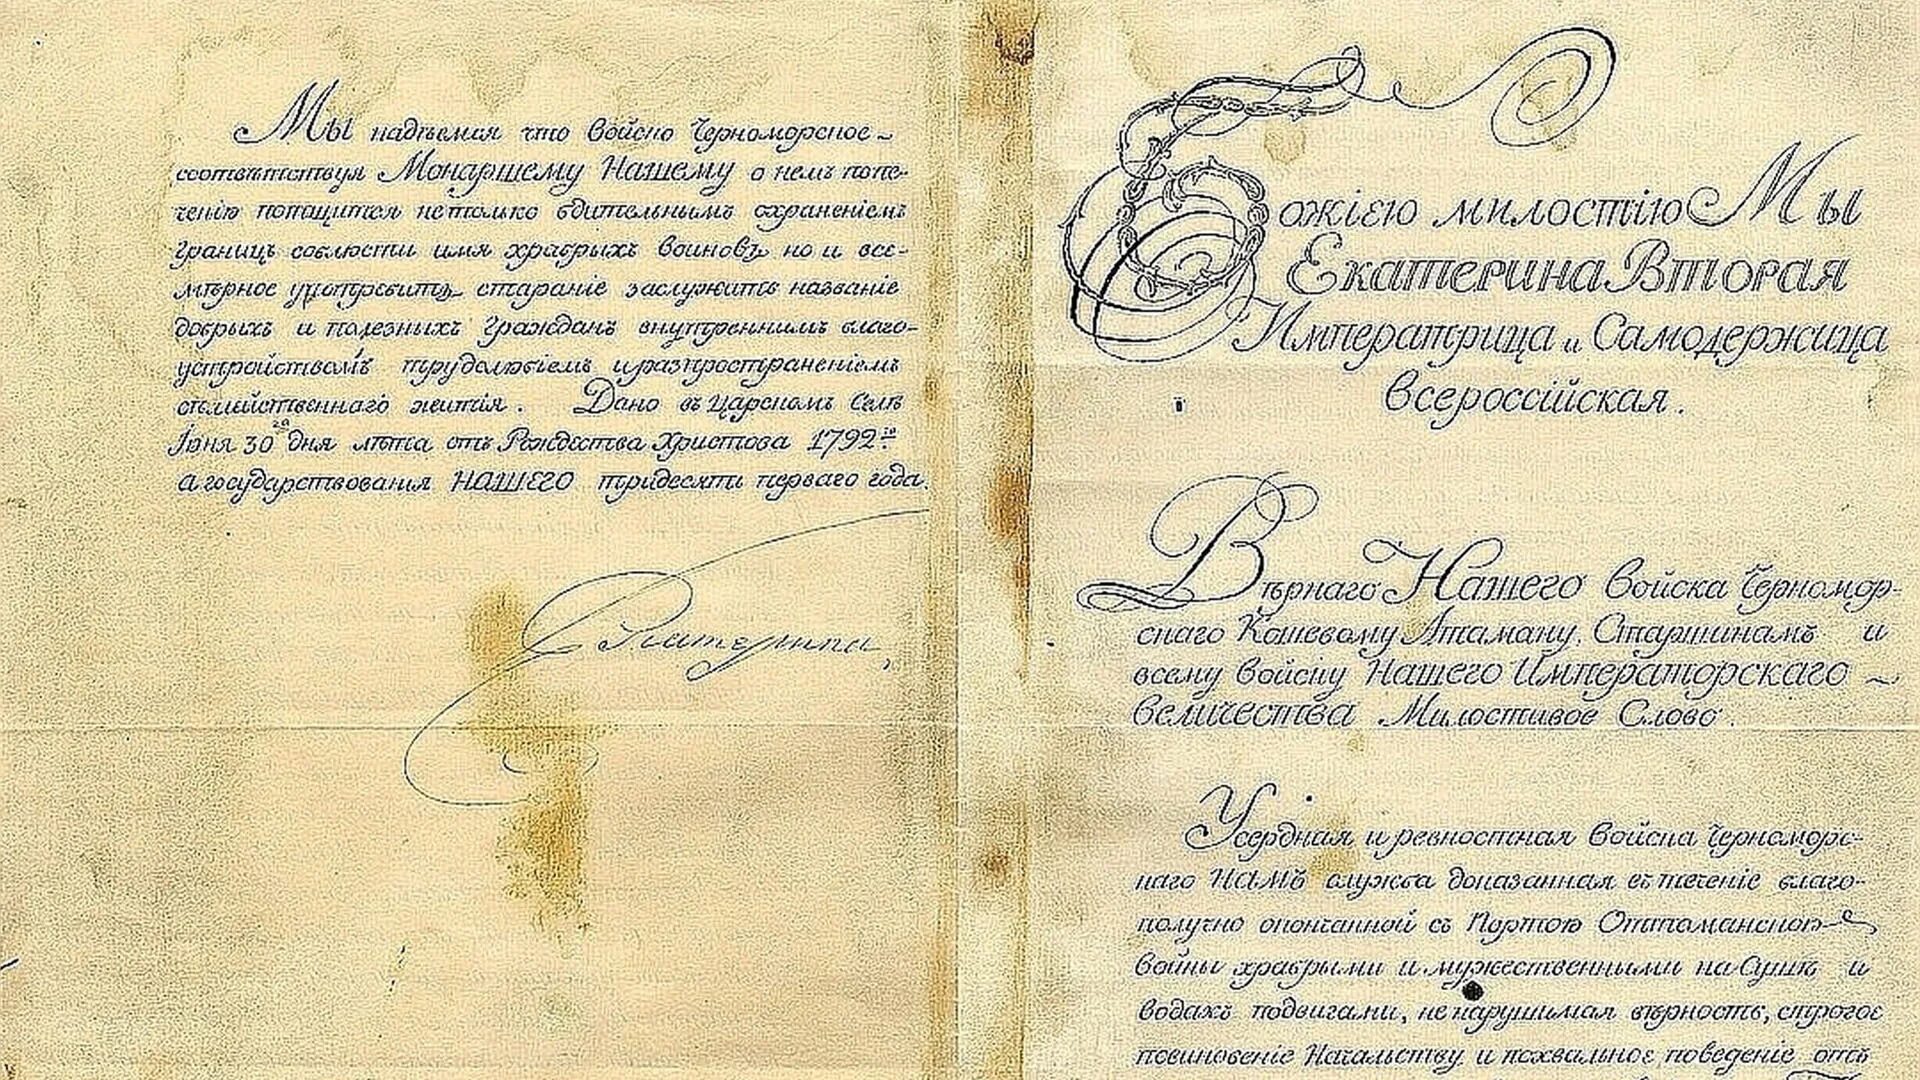 Мы надѣемся что войско Черноморское
соотвѣтствуя Монаршему Нашему о немъ попе-
ченію потщится не только бдительнымъ охраненіемъ
границъ соблюсти имя храбрыхъ воиновъ но и все-
мѣрное употребить стараніе заслужить названіе
добрыхъ и полезныхъ гражданъ внутреннимъ благо-
устройствомъ трудолюбіемъ и разпространеніемъ
семейственнаго житія. Дано въ Царскомъ Селѣ
Іюня 30го дня лѣта отъ Рождества Христова 1792го
а государствованія НАШЕГО тридесять перваго года.
Екатерина
Божіею милостію Мы
Екатерина Вторая
Императрица и Самодержица
Всероссійская.
Вѣрнаго Нашего Войска Черномор-
скаго Кошевому Атаману, Старшинамъ и
всему Войску Нашего Императорскаго
величества Милостивое Слово.
Усердная и ревностная Войска Черноморс-
каго НАМЪ служба доказанная въ теченіе благо-
получно оконченной съ Портою Оттоманскою
войны храбрыми и мужественными на Сушѣ и
водахъ подвигами, не нарушимая вѣрность, строгое
повиновеніе Начальству и похвальное поведеніе отъ